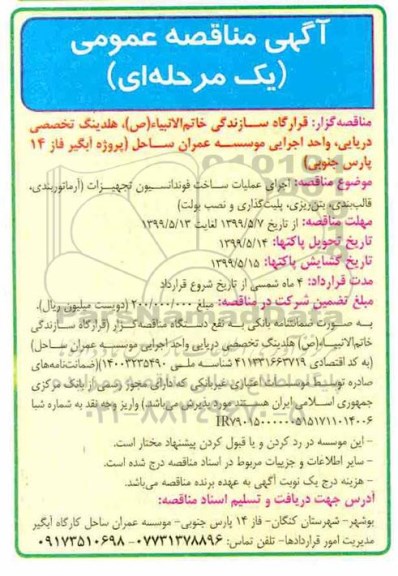 آگهی مناقصه عمومی
(یک مرحله‌ای)
مناقصه‌گزار: قرارگاه سازندگی خاتم‌الانبیاء(ص)، هلدینگ تخصصی
دریایی، واحد اجرایی موسسه عمران ساحل (پروژه آبگیر فاز ۱۴
پارس جنوبی)
موضوع مناقصه: اجرای عملیات ساخت فوندانسیون تجهیزات (آرماتوربندی،
قالب‌بندی، بتن‌ریزی، پلیت‌گذاری و نصب بولت)
مهلت مناقصه: از تاریخ ۱۳۹۹/۵/۷ لغایت ۱۳۹۹/۵/۱۳
تاریخ تحویل پاکتها: ۱۳۹۹/۵/۱۴
تاریخ گشایش پاکتها: ۱۳۹۹/۵/۱۵
مدت قرارداد: ۴ ماه شمسی از تاریخ شروع قرارداد
مبلغ تضمین شرکت در مناقصه: مبلغ ۲۰۰/۰۰۰/۰۰۰ (دویست میلیون ریال)،
به صورت ضمانتنامه بانکی به نفع دستگاه مناقصه‌گزار (قرارگاه سازندگی
خاتم‌الانبیاء(ص) هلدینگ تخصصی دریایی واحد اجرایی موسسه عمران ساحل)
(به کد اقتصادی ۴۱۱۳۳۱۶۶۳۷۱۹ شناسه ملی ۱۴۰۰۳۲۳۵۴۹۰)(ضمانت‌نامه‌های
صادره توسط موسسات اعتباری غیربانکی که دارای مجوز رسمی از بانک مرکزی
جمهوری اسلامی ایران هستند مورد پذیرش می‌باشد.) واریز وجه نقد به شماره شبا
IR۷۹۰۱۵۰۰۰۰۰۵۱۵۱۷۱۱۰۱۴۰۰۶
- این موسسه در رد کردن و یا قبول کردن پیشنهاد مختار است.
- سایر اطلاعات و جزییات مربوط در اسناد مناقصه درج شده است.
- هزینه درج یک نوبت آگهی به عهده برنده مناقصه می‌باشد.
آدرس جهت دریافت و تسلیم اسناد مناقصه:
بوشهر- شهرستان کنگان- فاز ۱۴ پارس جنوبی- موسسه عمران ساحل کارگاه آبگیر
مدیریت امور قراردادها- تلفن تماس: ۰۷۷۳۱۳۷۸۸۹۶ -۰۹۱۷۳۵۱۰۶۹۸
ParsNamadData
۰۲۱-۸۸۳۴۹۶۷۰-۵